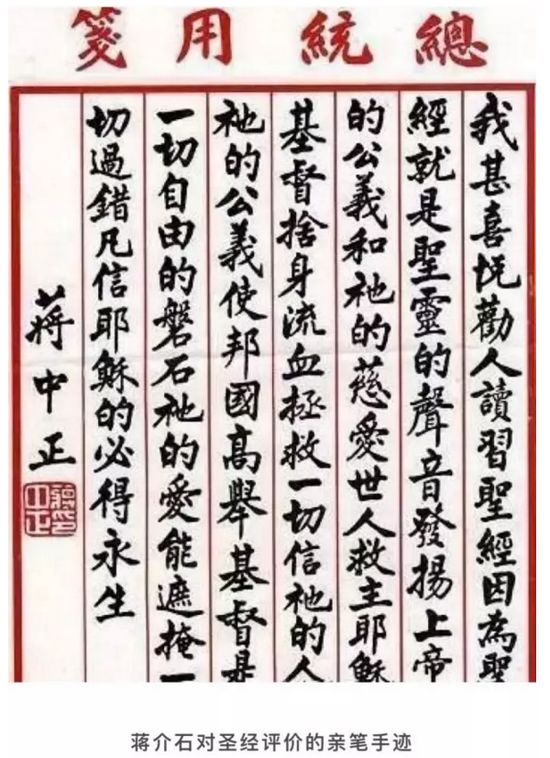 總統用箋
我甚喜悅勸人讀習聖經因為聖
經就是聖靈的聲音發揚上帝
的公義和祂的慈愛世人救主耶穌
基督捨身流血拯救一切信祂的人
祂的公義使邦國高舉基督是
一切自由的磐石祂的愛能遮掩一
切過錯凡信耶穌的必得永生
蔣中正
蔣中正印
蒋介石对圣经评价的亲笔手迹